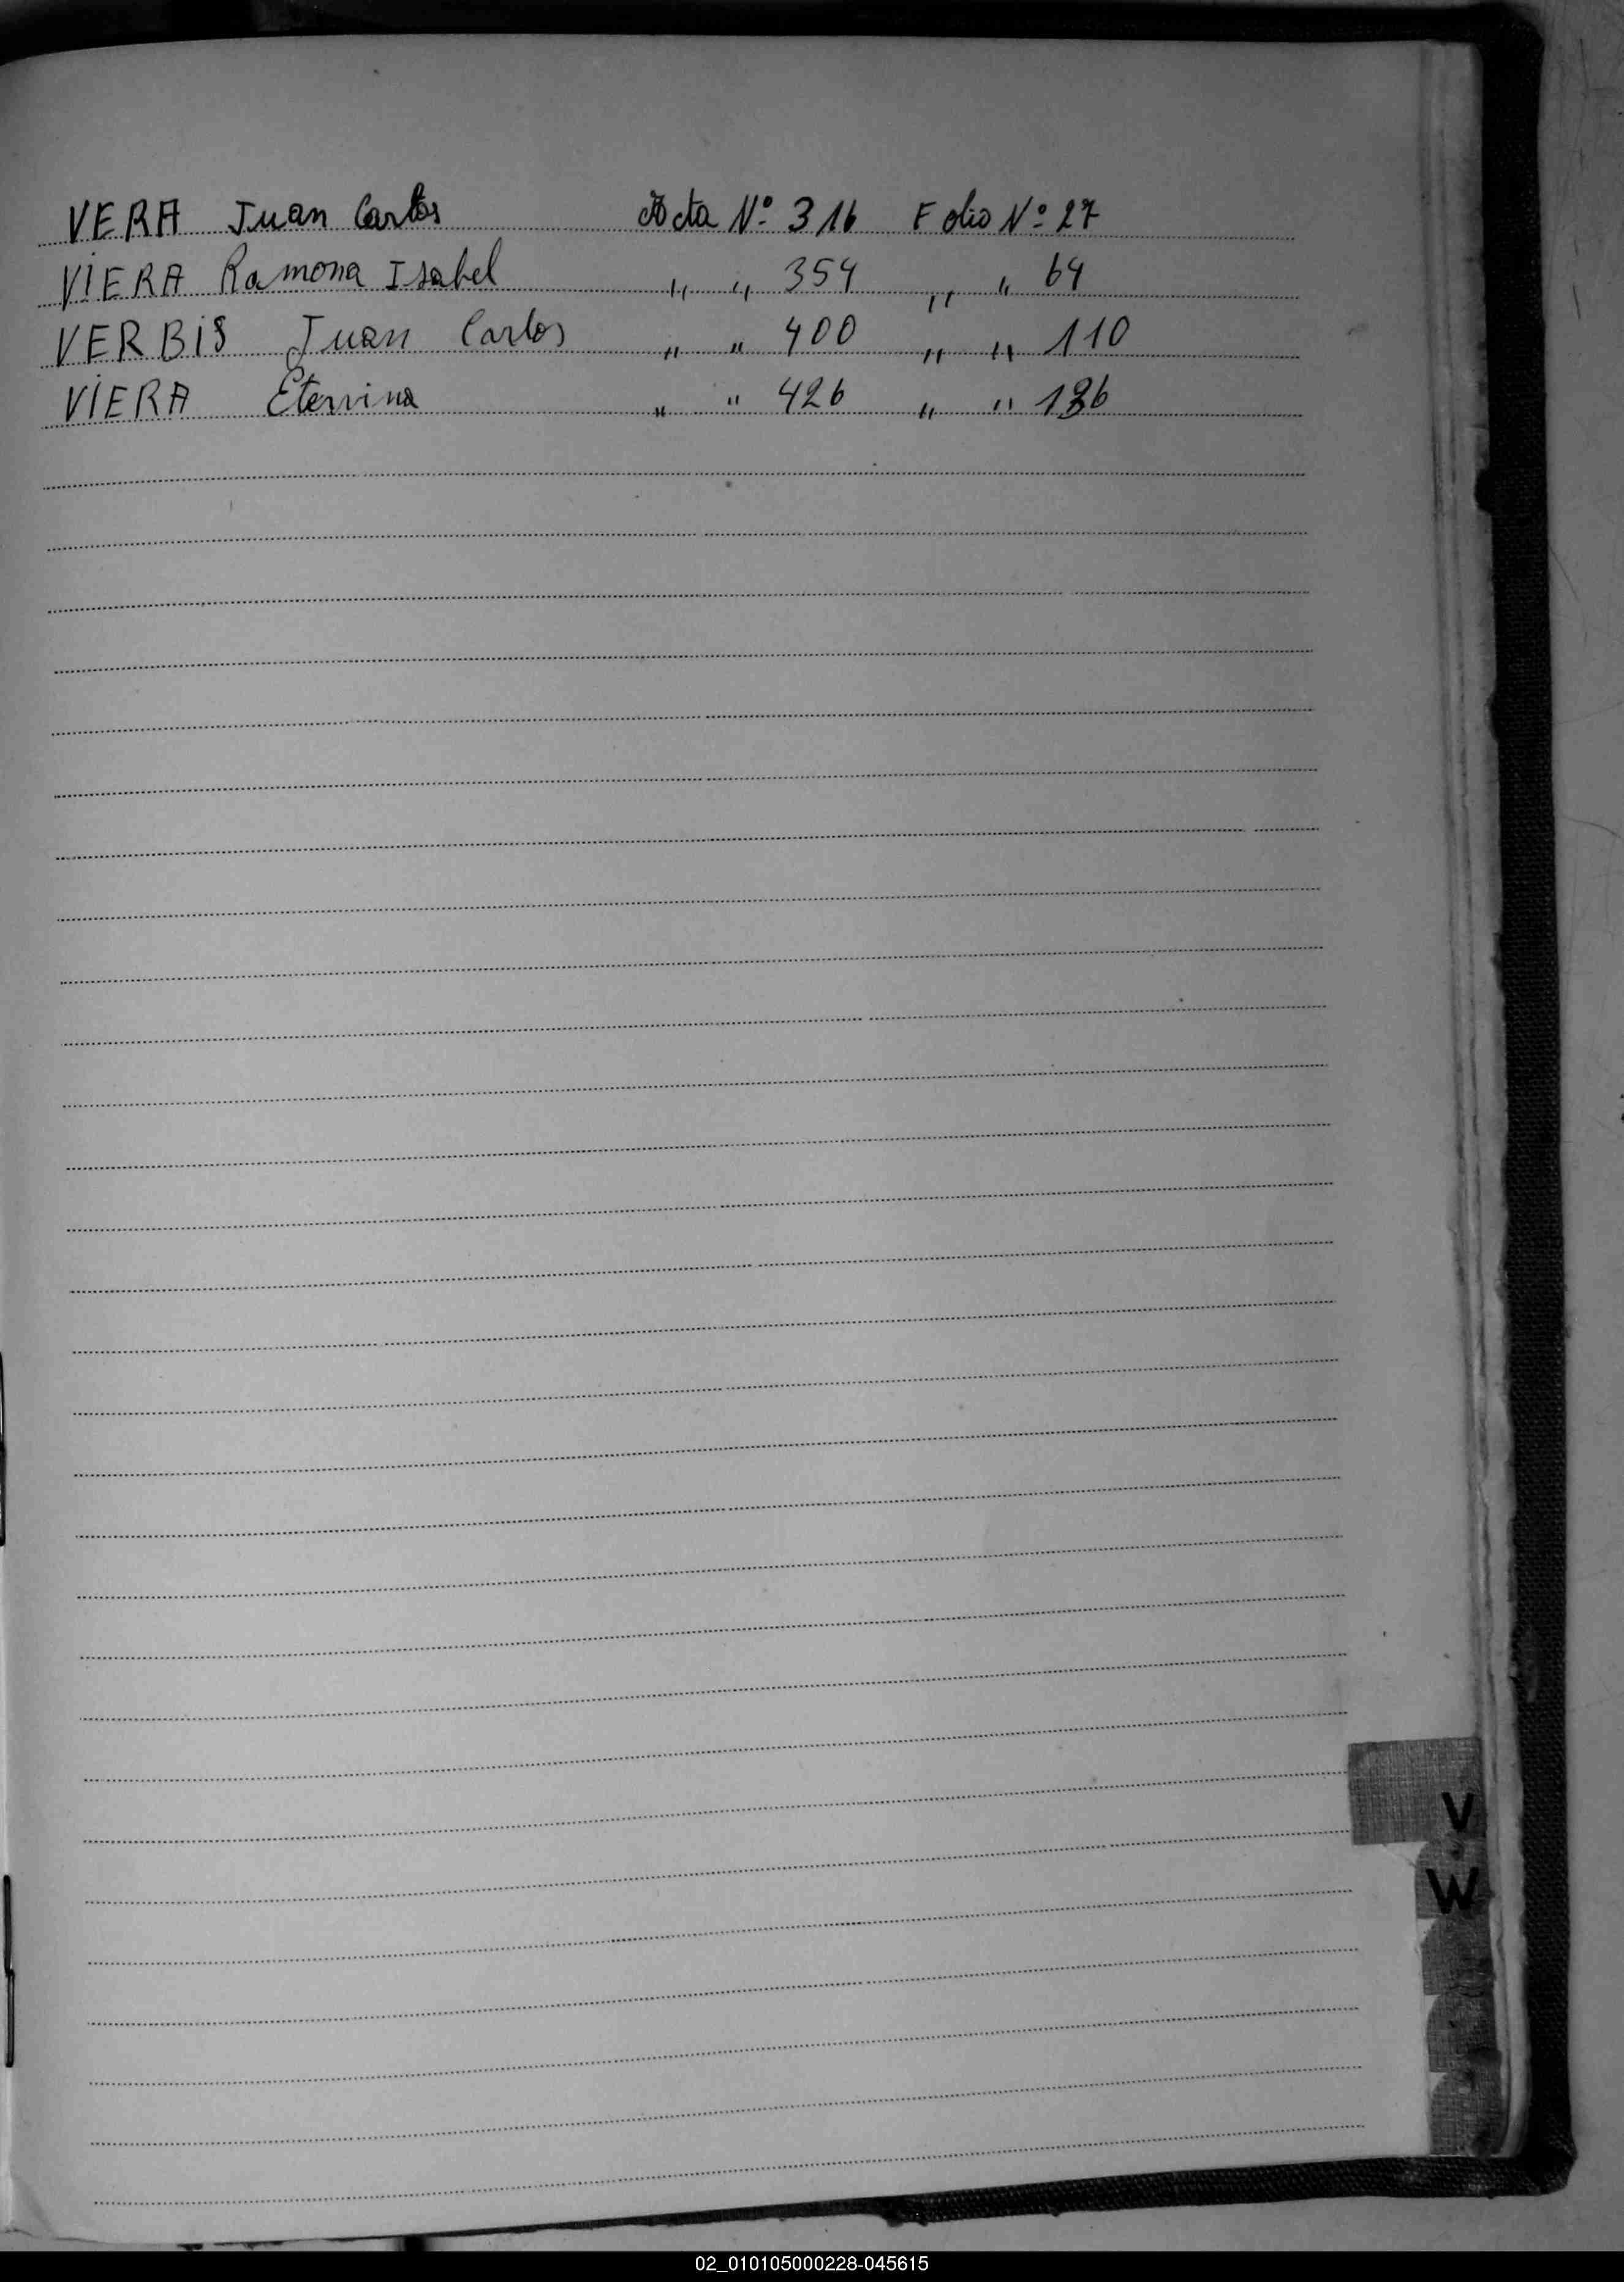 VERA Juan Carlos Acta Nº 316 Folio Nº 27
VIERA Ramona Isabel " " 354 " " 64
VERBIS Juan Carlos " " 400 " " 110
VIERA " " 426 " " 136
V
W
02_010105000228-045615